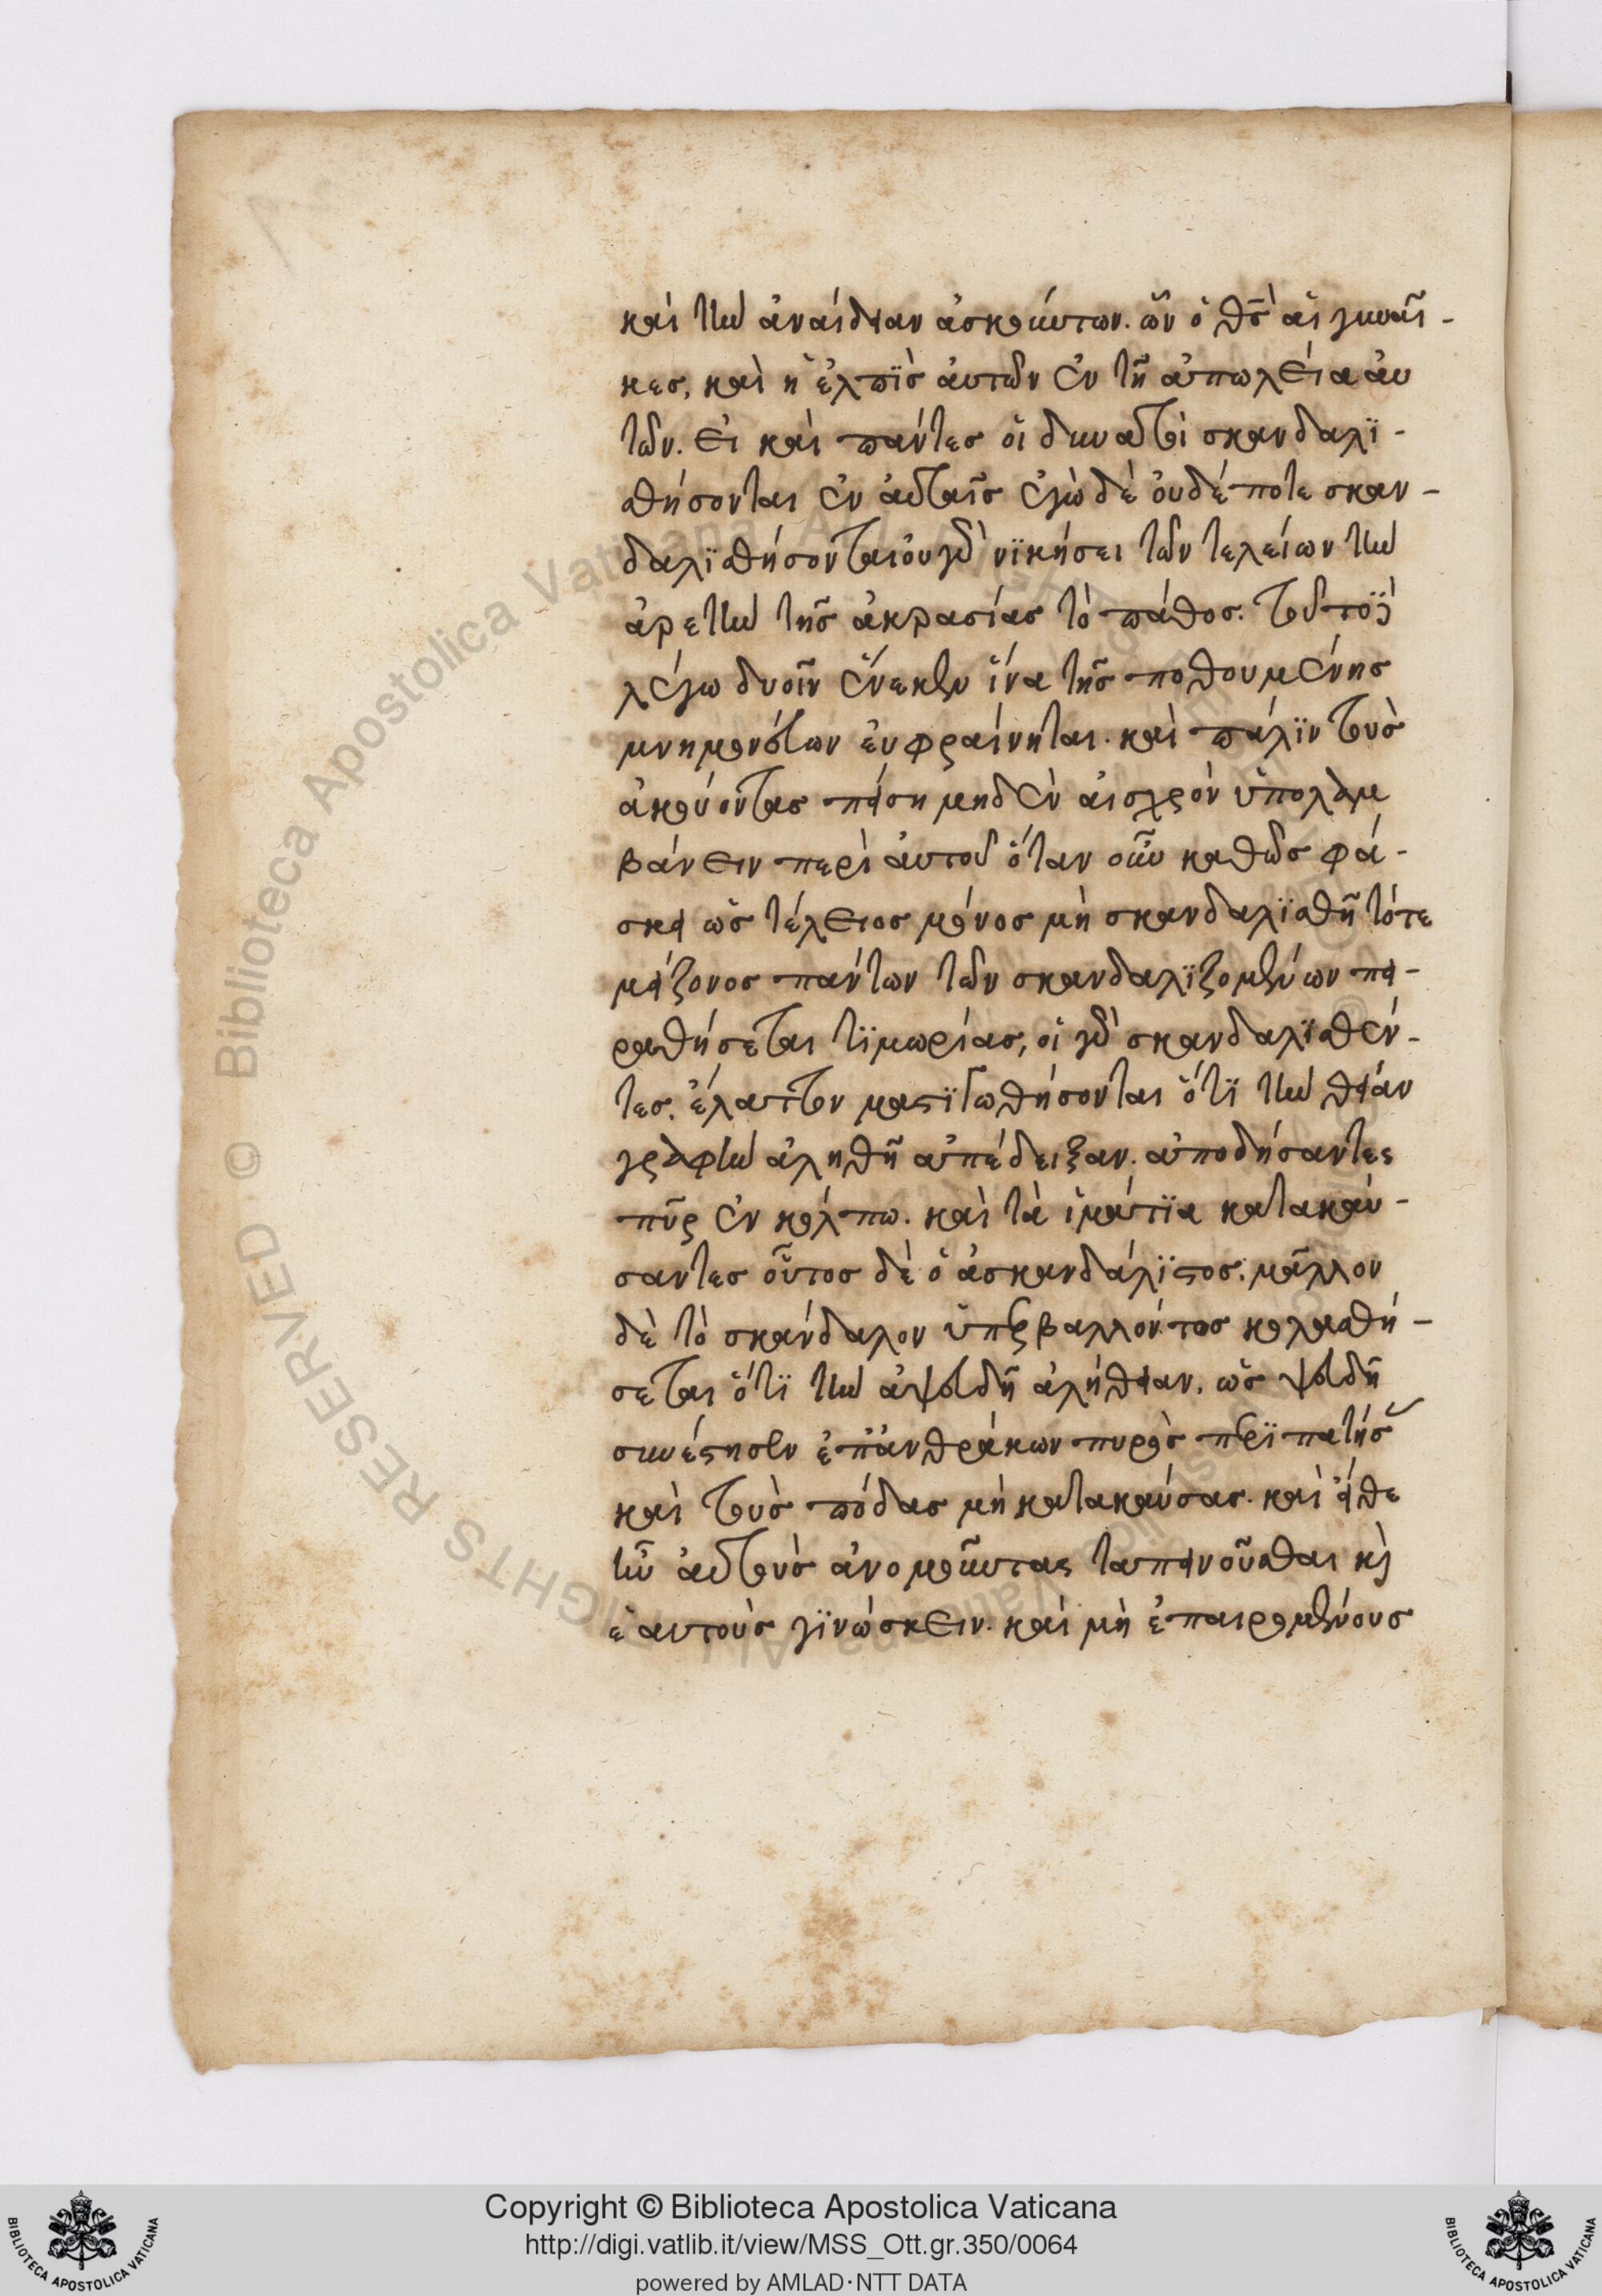 καὶ τὴν ἀναίδειαν ἀσκούντων. ὧν ὁ θς̅ αἱ γυναῖ-
κες, καὶ ἡ ἐλπῒς ἀυτῶν ἐν τῆ ἀπωλεία ἀυ
τῶν. εἰ καὶ πάντες οἱ δυνατοὶ σκανδαλϊ-
σθήσονται ἐν ἀυταῖς ἐγὼ δὲ ὀυδέποτε σκαν-
δαλϊσθήσονται ὀυ γὰρ νϊκήσει τῶν τελείων τὴν
ἀρετὴν τῆς ἀκρασίας τὸ πάθος. τοῦτο
λέγω δυοῖν ἕνεκεν ἵνα τῆς ποθουμένης
μνημονεύων ἐυφραίνηται. καὶ πάλϊν τοὺς
ἀκούοντας πείση μηδὲν ἀισχρὸν ὑπολαμ
βάνειν περὶ ἀυτοῦ ὅταν οὖν καθὼς φά-
σκει ὡς τέλειος μόνος μὴ σκανδαλϊσθῆ τότε
μείζονος πάντων τῶν σκανδαλϊζομένων πει-
ραθήσεται τϊμωρίας, οἱ γὰρ σκανδαλϊσθέν-
τες. ἔλαττον μαστϊγωθήσονται ὅτϊ τὴν θείαν
γραφὴν ἀληθῆ ἀπέδειξαν. ἀποδήσαντες
πῦρ ἐν κόλπω. καὶ τὰ ἱμάτϊα κατακαύ-
σαντες οὗτος δὲ ὁ ἀσκανδάλϊστος. μᾶλλον
δὲ τὸ σκάνδαλον ὑπερβαλλόντως κολασθή-
σεται ὅτϊ τὴν ἀψευδῆ ἀλήθειαν. ὡς ψευδῆ
συνέστησεν ἐπ' ἀνθράκων πυρὸς περϊπατήσας
καὶ τοὺς πόδας μὴ κατακαύσας. καὶ εἴθε
ἀυτοὺς ἀνομοῦντας ταπεινοῦσθαι κὶ
ἑαυτοὺς γϊνώσκειν. καὶ μὴ ἐπαιρομένους
Copyright © Biblioteca Apostolica Vaticana
http://digi.vatlib.it/view/MSS_Ott.gr.350/0064
powered by AMLAD·NTT DATA
BIBLIOTECA APOSTOLICA VATICANA
BIBLIOTECA APOSTOLICA VATICANA